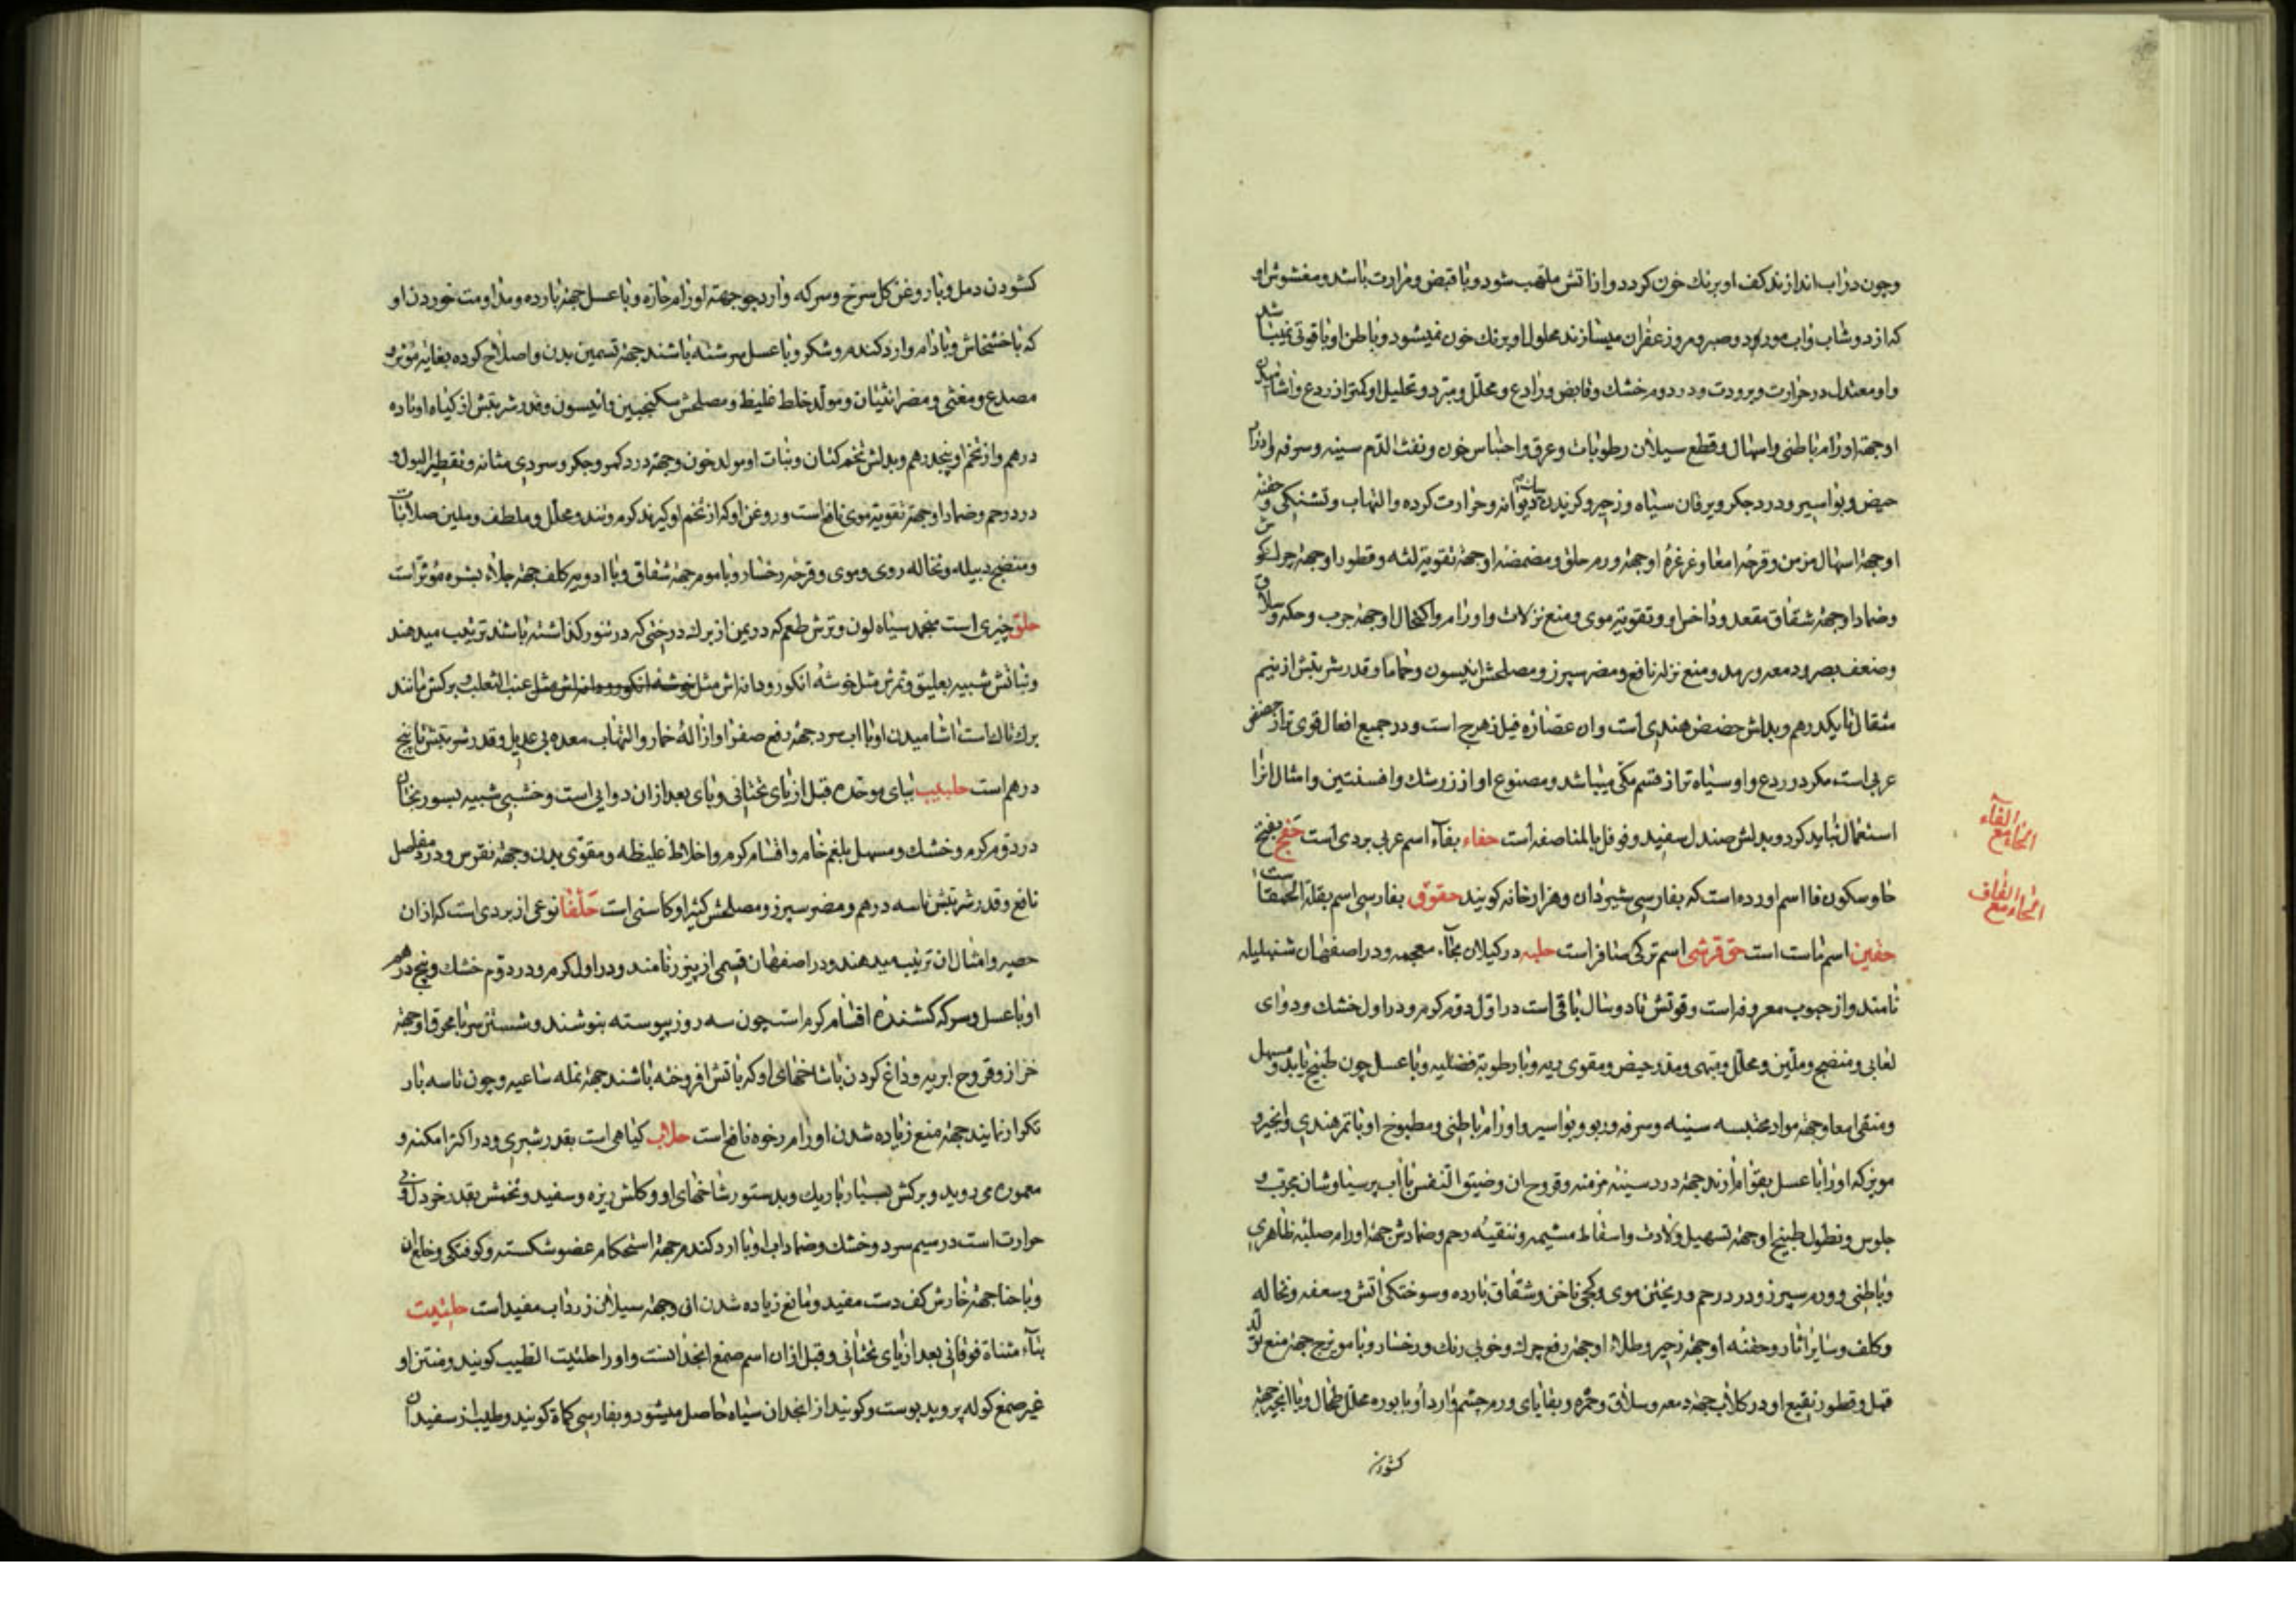 وچون در اب اندازند کف او برنك خون کردد واز اتش ملتهب شود وبا قبض ومرارت باشد ومغشوش او
که از دوشاب واب مورد وصبر ومر وزعفران میسازند محلول او برنك خون نمیشود وباطن او یاقوتی نمیباشد
واو معتدل در حرارت وبرودت ودر دوم خشك وقابض ورادع ومحلل ومبرد وتحلیل او کمتر از ردع واشامیدن
او جهته اورام باطنی واسهال وقطع سیلان رطوبات وعرق واحتباس خون ونفث الدم سینه وسرفه وادرار
حیض وبواسیر ودرد جکر ویرقان سیاه وزحیر وکزیدن سك دیوانه وحرارت کرده والتهاب وتشنکی وحقنه
او جهته اسهال مزمن وقرحه امعا وغرغرهٔ او جهته ورم حلق ومضمضه او جهته تقویته لثه وقطور او جهته چرك کوش
وضماد او جهته شقاق مقعد وداخل او وتقویته موی ومنع نزلات واورام واکتحال او جهته جرب وحکه وسلاق
وضعف بصر ودمعه ورمد ومنع نزله نافع ومضر سپرز ومصلحش انیسون وحماما وقدر شربتش از نیم
مثقال تا یکدرهم وبدلش حضض هندی است وان عصاره فیلزهرج است ودر جمیع افعال قوی تر از حضض
عربی است مکر در ردع واو سیاه تر از قسم مکی میباشد ومصنوع او از زرشك وافسنتین وامثال انرا
استعمال نباید کرد وبدلش صندل سفید وفوفل بالمناصفه است حفاء بفاء اسم عربی بردی است حفج بفتح
حا وسکون فا اسم اورده است که بفارسی شیردان وهزارخانه کویند حقوق بفارسی اسم بقلة الحمقا است
حقین اسم ماست است حق قرشی اسم ترکی سنافر است حلبه در کیلان بخاء معجمه ودر اصفهان شنبلیله
نامند واز حبوب معروفه است وقوتش تا دو سال باقی است در اول دوم کرم ودر اول خشك ودوای
لعابی ومنضج وملین ومحلل ومبهی ومدر حیض ومقوی ریه وبا رطوبة فضلیه وبا عسل چون طبیخ یابد ومسهل
ومنقی امعا وجهته مواد محتبسه سینه وسرفه وربو وبواسیر واورام باطنی ومطبوخ او با تمر هندی وانجیر و
مویز که او را با عسل بقوام ارند جهته درد سینه مزمنه وقروح ان وضیق النفس با اب پرسیاوشان مجرب و
جلوس ونطول طبیخ او جهته تسهیل ولادت واسقاط مشیمه وتنقیه رحم وضمادش جهته اورام صلبه ظاهری
وباطنی وورم سپرز ودرد رحم وریختن موی وکجی ناخن وشقاق بارده وسوختکی اتش وسعفه ونخاله
وکلف وسایر اثار وحقنه او جهته زحیر وطلاء او جهته رفع چرك وخوبی رنك ورخسار وبا مویزج جهته منع تولد
قمل وقطور نقیع او در کلاب جهته دمعه وسلاق وحمره وبقایای ورم چشم وارد او با بوره محلل طحال وبا انجیر جهته
کشودن
الحاء مع الفاء
الحاء مع القاف
کشودن دمل وبا روغن کل سرخ وسرکه وارد جو جهته اورام حاره وبا عسل جهته بارده ومداومت خوردن او
که با خشخاش وبادام وارد کندم وشکر وبا عسل سرشته باشند جهته تسمین بدن واصلاح کرده بغایه مؤثر و
مصدع ومغثی ومضر انثیان ومولد خلط غلیظ ومصلحش سکنجبین وانیسون وقدر شربتش از کیاه او تا ده
درهم واز تخم او پنجدرهم وبدلش تخم کتان ونبات او مولد خون وجهته درد کمر وجکر وسردی مثانه وتقطیر البول و
درد رحم وضماد او جهته تقویته موی نافع است وروغن او که از تخم او کیرند کرم وتند ومحلل وملطف وملین صلابات
ومنضج دبیله ونخاله روی وموی وقرحه رخسار وبا موم جهته شقاق وبا ادویه کلف جهته جلاء بشره مؤثر است
حلق چیزی است منجمد سیاه لون وترش طعم که در یمن از برك درختی که در تنور کذاشته باشند ترتیب میدهند
ونباتش شبیه بعلیق وثمرش مثل خوشه انکور ودانه اش مثل خوشه انکور ودانه اش مثل عنب الثعلب وبرکش مانند
برك تاك است اشامیدن او با اب سرد جهته رفع صفرا وازالهٔ خمار والتهاب معده بی عدیل وقدر شربتش تا پنج
درهم است حلبیب ببای موحده قبل از یای تحتانی وبای بعد از ان دوایی است وخشبی شبیه بسورنجان
در دوم کرم وخشك ومسهل بلغم خام واقسام کرم واخلاط غلیظه ومقوی بدن وجهته نقرس ودرد مفاصل
نافع وقدر شربتش تا سه درهم ومضر سپرز ومصلحش کتیرا وکاسنی است حلفا نوعی از بردی است که از ان
حصیر وامثال ان ترتیب میدهند ودر اصفهان قسمی از پیزر نامند ودر اول کرم ودر دوم خشك وپنج درهم
او با عسل وسرکه کشنده اقسام کرم است چون سه روز پیوسته بنوشند وشستن سر با محرق او جهته
خراز وقروح ابریه وداغ کردن با شاخهای او که باتش افروخته باشند جهته نمله ساعیه وچون تا سه بار
تکرار نمایند جهته منع زیاده شدن اورام رخوه نافع است حلاب کیاهی است بقدر شبری ودر اکثر امکنه و
معموره می روید وبرکش بسیار باریك وبدستور شاخهای او وکلش ریزه وسفید وتخمش بقدر خردل وبی
حرارت است در سیم سرد وخشك وضماد اب او با ارد کندم جهته استحکام عضو شکسته وکوفتکی وخلع ان
وبا حنا جهته خارش کف دست مفید ومانع زیاده شدن ان وجهته سیلان زرداب مفید است حلتیت
بتاء مثناة فوقانی بعد از یای تحتانی وقبل از ان اسم صمغ انجدانست واو را حلتیت الطیب کویند ومنتن او
غیر صمغ کوله پر وید بوست وکویند از انجدان سیاه حاصل میشود وبفارسی کماة کویند وطیب از سفید ان